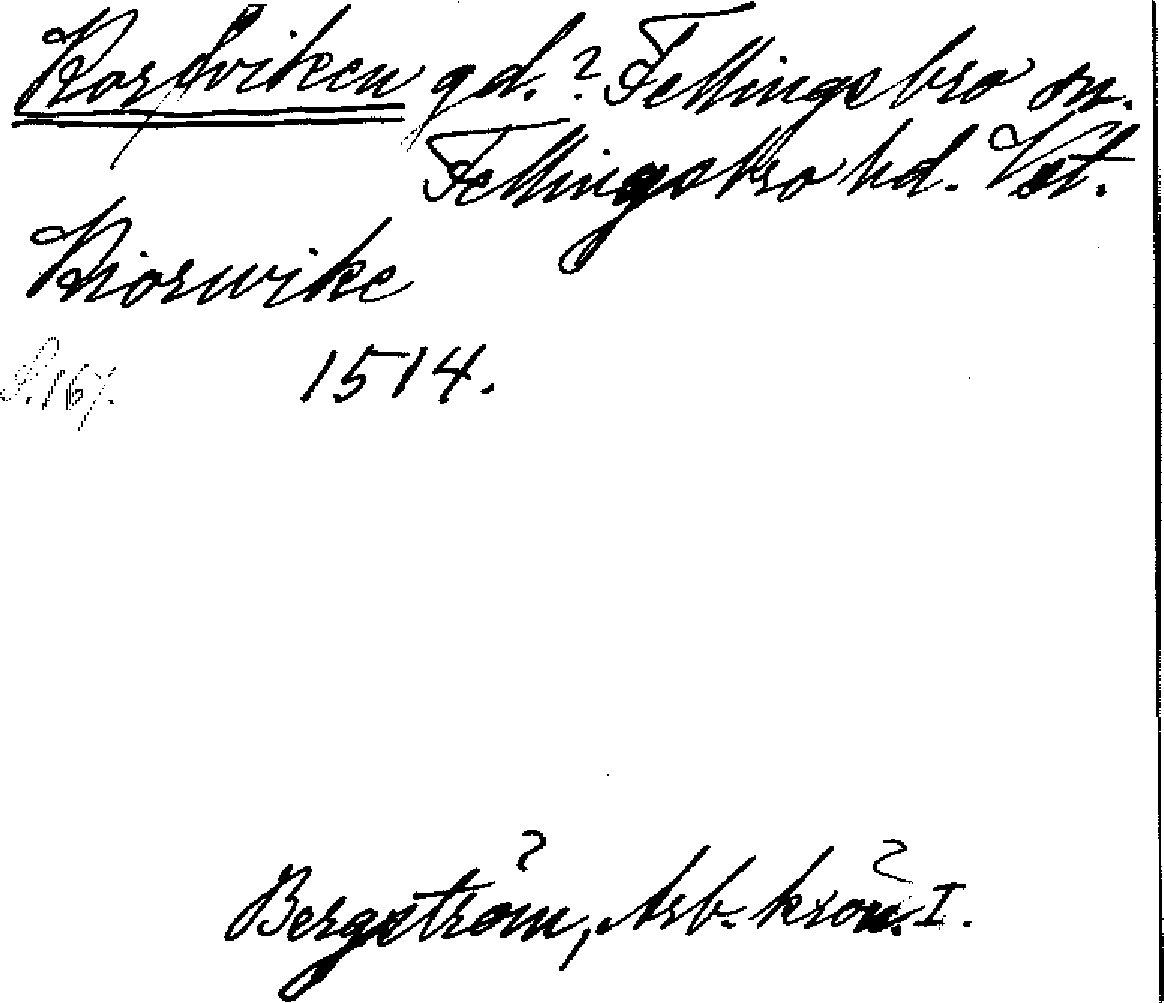 Korsviken gd.? Fellingsbro sn.
Fellingsbro hd. Vst.
Kiorwike
S. 167. 1514.
Bergström, Arb. krön. I.